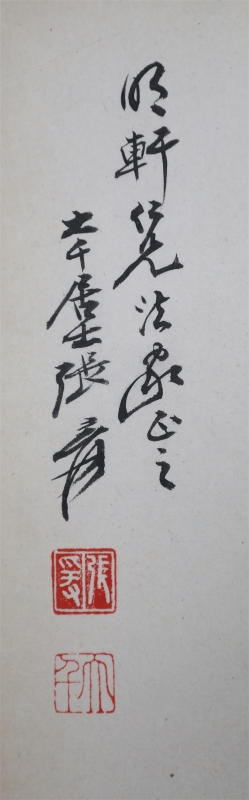 明軒仁兄法家正之
大千居士張爰
張爰
大千